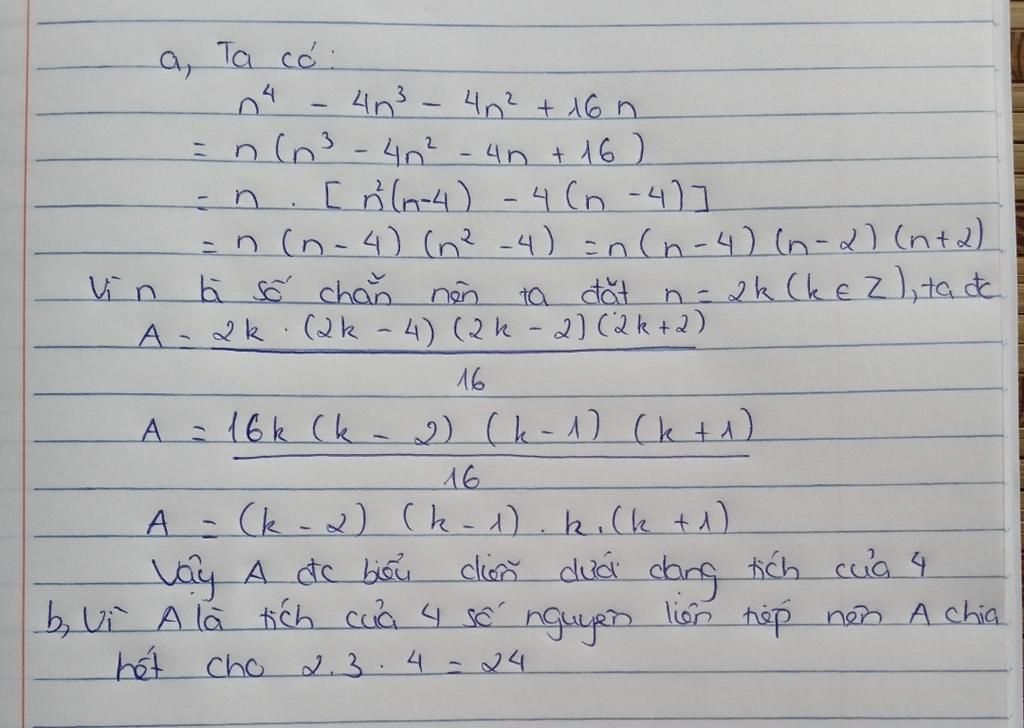 a, Ta có:
n⁴ - 4n³ - 4n² + 16n
= n(n³ - 4n² - 4n + 16)
= n . [n²(n-4) - 4(n-4)]
= n(n-4)(n²-4) = n(n-4)(n-2)(n+2)
Vì n là số chẵn nên ta đặt n = 2k(k∈Z), ta đc
A = 2k . (2k-4)(2k-2)(2k+2)
16
A = 16k(k-2)(k-1)(k+1)
16
A = (k-2)(k-1).k.(k+1)
Vậy A đc biểu diễn dưới dạng tích của 4
b, Vì A là tích của 4 số nguyên liên tiếp nên A chia
hết cho 2.3.4 = 24